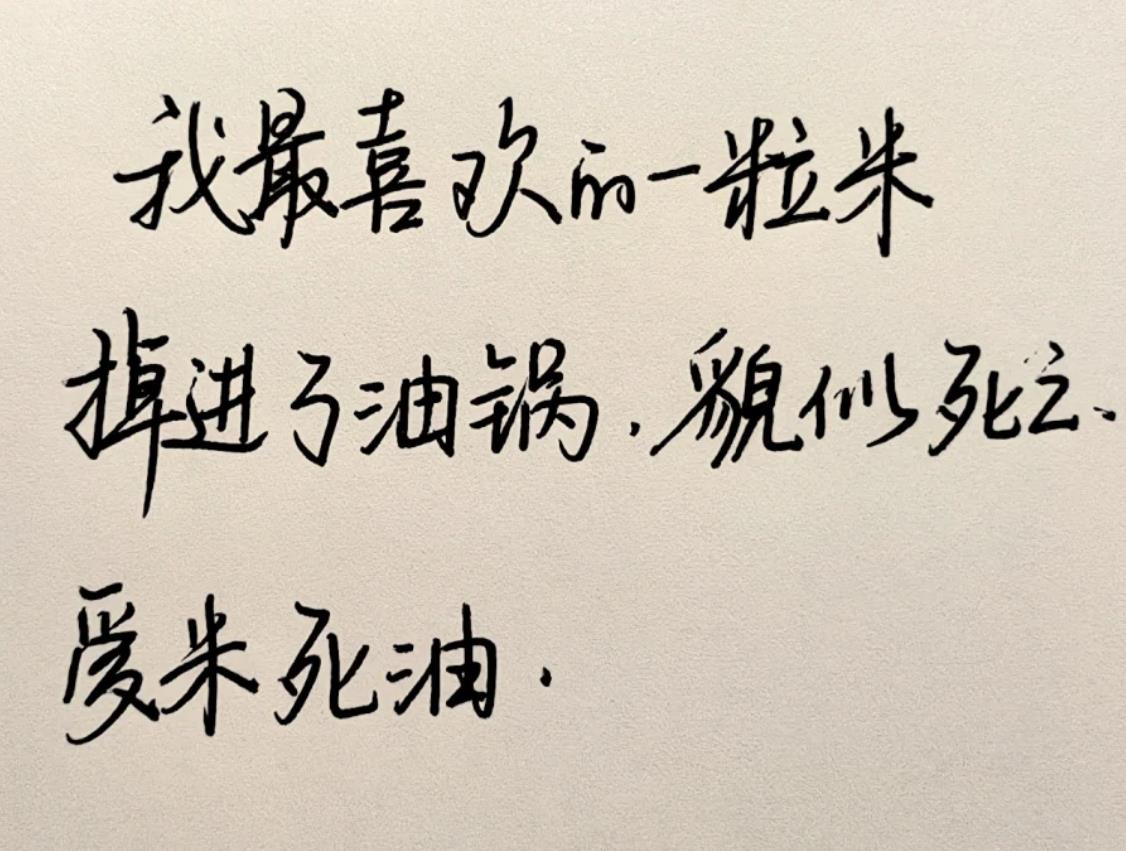 我最喜欢的一粒米
掉进了油锅.貌似死亡、
爱米死油.